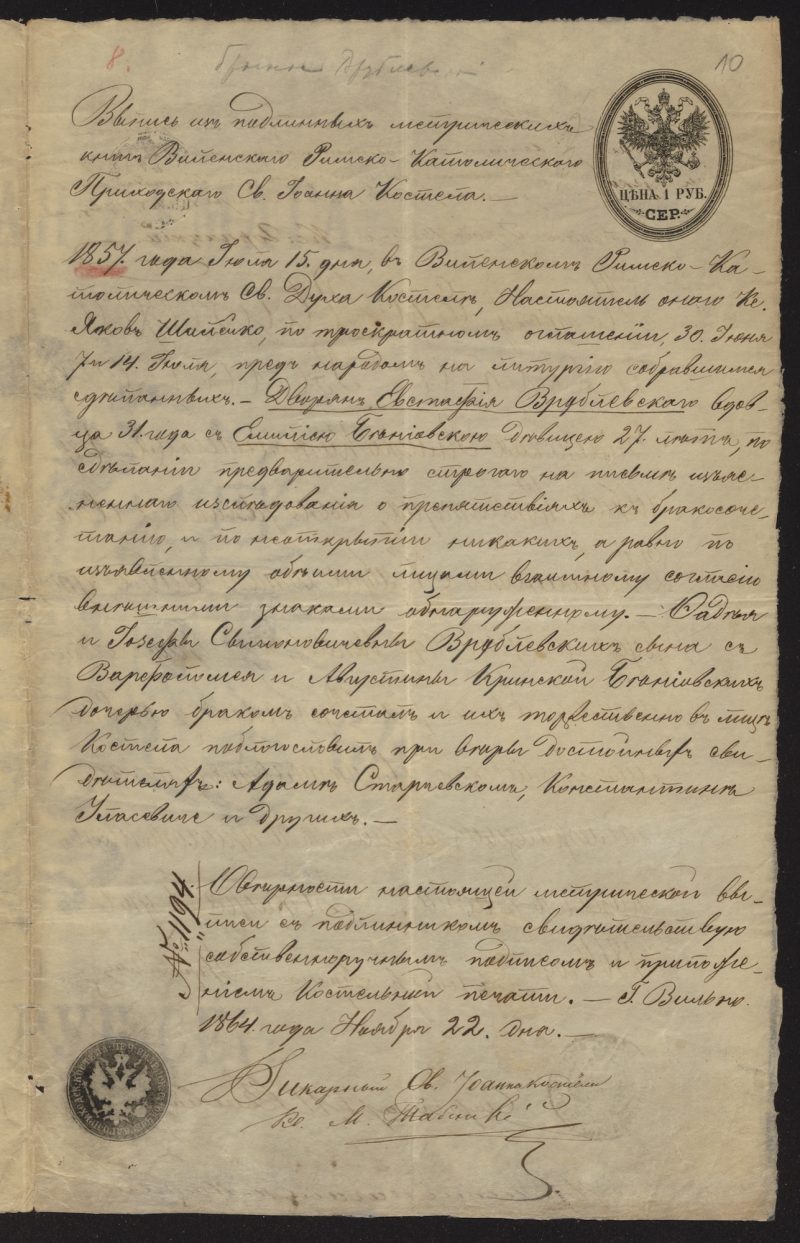 8.
10
Выпись изъ подлинныхъ метрическихъ
книгъ Виленскаго Римско-Католическаго
Приходскаго Св. Іоанна Костела.—
ЦѢНА 1 РУБ.
СЕР.
1857. года Іюля 15. дня, въ Виленскомъ Римско-Ка-
толическомъ Св. Духа Костелѣ, Настоятель онаго Кс.
Яковъ по троекратномъ оглашеніи, 30. Іюня
7 и 14. Іюля, предъ народомъ на литургію собравшимся
сдѣланныхъ.— Дворянъ Евстафія Врублевскаго вдов-
ца 31. года съ Емиліею Беніовскою дѣвицею 27. лѣтъ, по
сдѣланіи предварительно строгаго на письмѣ изъяс-
неннаго изслѣдованія о препятствіяхъ къ бракосоче-
танію, и по неоткрытіи никакихъ, а равно по
изъявленному обѣими лицами взаимному согласію
внѣшними знаками обнаруженному.— Фадѣя
и Іосефы Свентоновичевны Врублевскихъ сына съ
Варфоломея и Августины Кринской Беніовскихъ
дочерью бракомъ сочеталъ и ихъ торжественно въ лицѣ
Костела поблагословилъ при вѣры достойныхъ сви-
дѣтеляхъ: Адамѣ Константинѣ
и другихъ.—
№ 1194.
О вѣрности настоящей метрической вы-
писи съ подлинникомъ свидѣтельствую
собственноручнымъ подписомъ и приложе-
ніемъ Костельной печати.— Г. Вильно.
1864. года Ноября 22. дня.—
Викарный Св. Іоанна Костела
Кс. М.